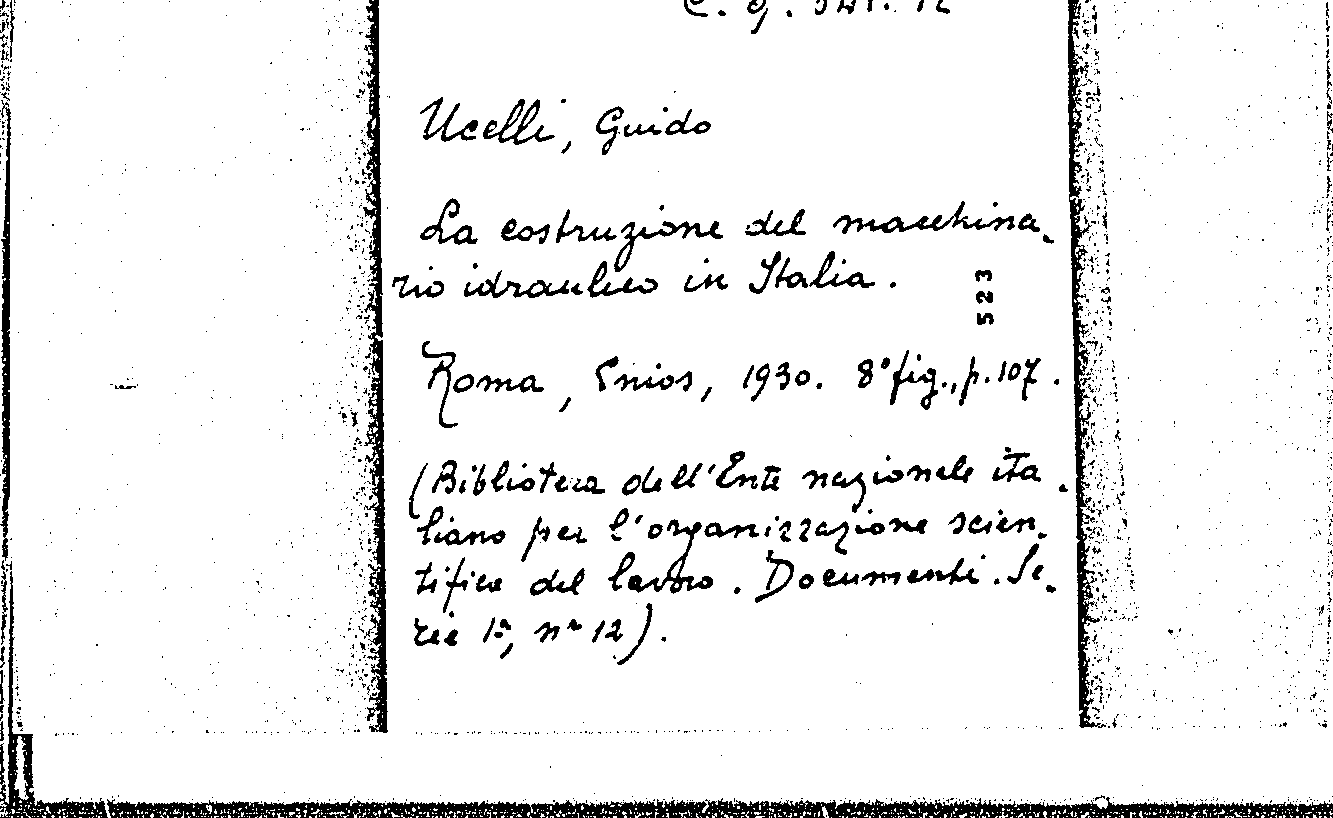 Ucelli, Guido
La costruzione del macchina-
rio idraulico in Italia.
523
Roma, Enios, 1930. 8° fig., p. 107.
(Biblioteca dell'Ente nazionale ita-
liano per l'organizzazione scien-
tifica del lavoro. Documenti. Se-
rie 1ª, nº 12).